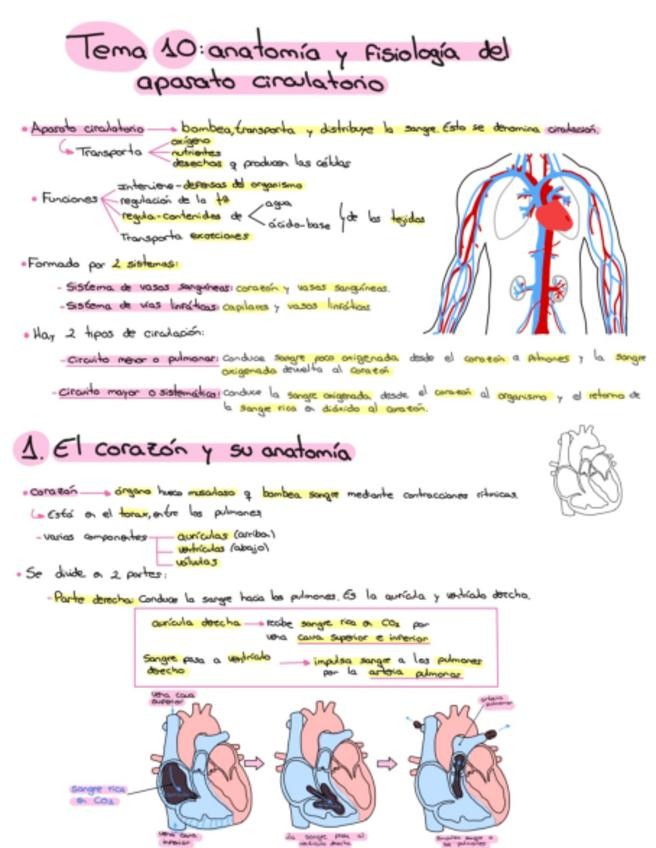 Tema 10: anatomía y fisiología del
aparato circulatorio
• Aparato circulatorio → bombea, transporta y distribuye la sangre. Esto se denomina circulación.
Transporta
oxígeno
nutrientes
desechos q producen las células
• Funciones
Interviene-defensas del organismo
regulación de la tª
regula-contenidos de
agua
ácido-base
de los tejidos
Transporta excreciones
• Formado por 2 sistemas:
- Sistema de vasos sanguíneos: corazón y vasos sanguíneos.
- Sistema de vías linfáticas: capilares y vasos linfáticos
• Hay 2 tipos de circulación:
- Circuito menor o pulmonar: Conduce sangre poco oxigenada desde el corazón a pulmones y la sangre
oxigenada devuelta al corazón
- Circuito mayor o sistemático: Conduce la sangre oxigenada desde el corazón al organismo y el retorno de
la sangre rica en dióxido al corazón.
1. El corazón y su anatomía
• corazón → órgano hueco musculoso q bombea sangre mediante contracciones rítmicas.
Está en el torax, entre los pulmones
- varios componentes
aurículas (arriba)
ventrículos (abajo)
válvulas
• Se divide en 2 partes:
- Parte derecha: Conduce la sangre hacia los pulmones. Es la aurícula y ventrículo derecho.
aurícula derecha → recibe sangre rica en CO₂ por
vena cava superior e inferior
Sangre pasa a ventrículo → impulsa sangre a los pulmones
derecho por la arteria pulmonar
vena cava
superior
arteria
pulmonar
sangre rica
en CO₂
vena cava
inferior
La sangre pasa al
ventrículo derecho